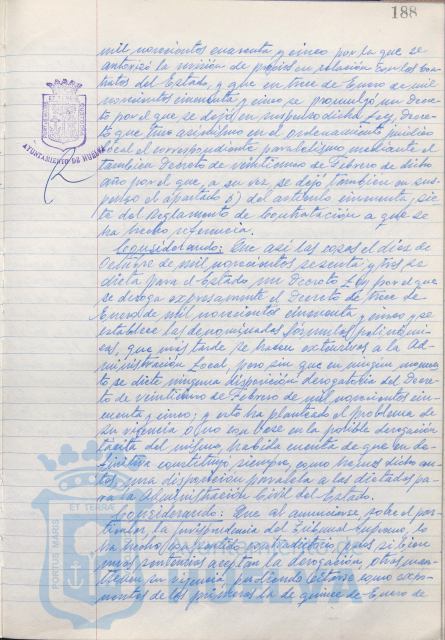 188
mil novecientos cuarenta y cinco por la que se
autorizó la revisión de precios en relación con los Con-
tratos del Estado, y que en trece de Enero de mil
novecientos cincuenta y cinco se promulgó un Decre-
to por el que se dejó en suspenso dicha Ley, Decre-
to que tuvo asimismo en el ordenamiento jurídico
local el correspondiente paralelismo mediante el
también Decreto de veinticinco de Febrero de dicho
año por el que, a su vez, se dejó también en sus-
penso el apartado b) del artículo cincuenta y sie-
te del Reglamento de Contratación a que se
ha hecho referencia.
Considerando: Que así las cosas el diez de
Octubre de mil novecientos sesenta y tres, se
dicta para el Estado un Decreto Ley por el que
se deroga expresamente el Decreto de trece de
Enero de mil novecientos cincuenta y cinco y se
establece las denominadas fórmulas polinómi-
cas, que más tarde se hacen extensivas a la Ad-
ministración Local, pero sin que en ningún momen-
to se dicte ninguna disposición derogatoria del Decre-
to de veinticinco de Febrero de mil novecientos cin-
cuenta y cinco; y esto ha planteado el problema de
su vigencia o no con base en la posible derogación
tácita del mismo, habida cuenta de que en de-
finitiva constituye, siempre, como hemos dicho an-
tes, una disposición paralela a las dictadas pa-
ra la Administración Civil del Estado.
Considerando: Que al anunciarse sobre el par-
ticular, la jurisprudencia del Tribunal Supremo, lo
ha hecho en sentido contradictorio, pues si bien
unas sentencias aceptan la derogación, otras man-
tienen su vigencia, pudiendo citarse como expo-
nentes de las primeras la de quince de Enero de
AYUNTAMIENTO DE HUELVA
PORTUS MARIS ET TERRAE
HUELVA